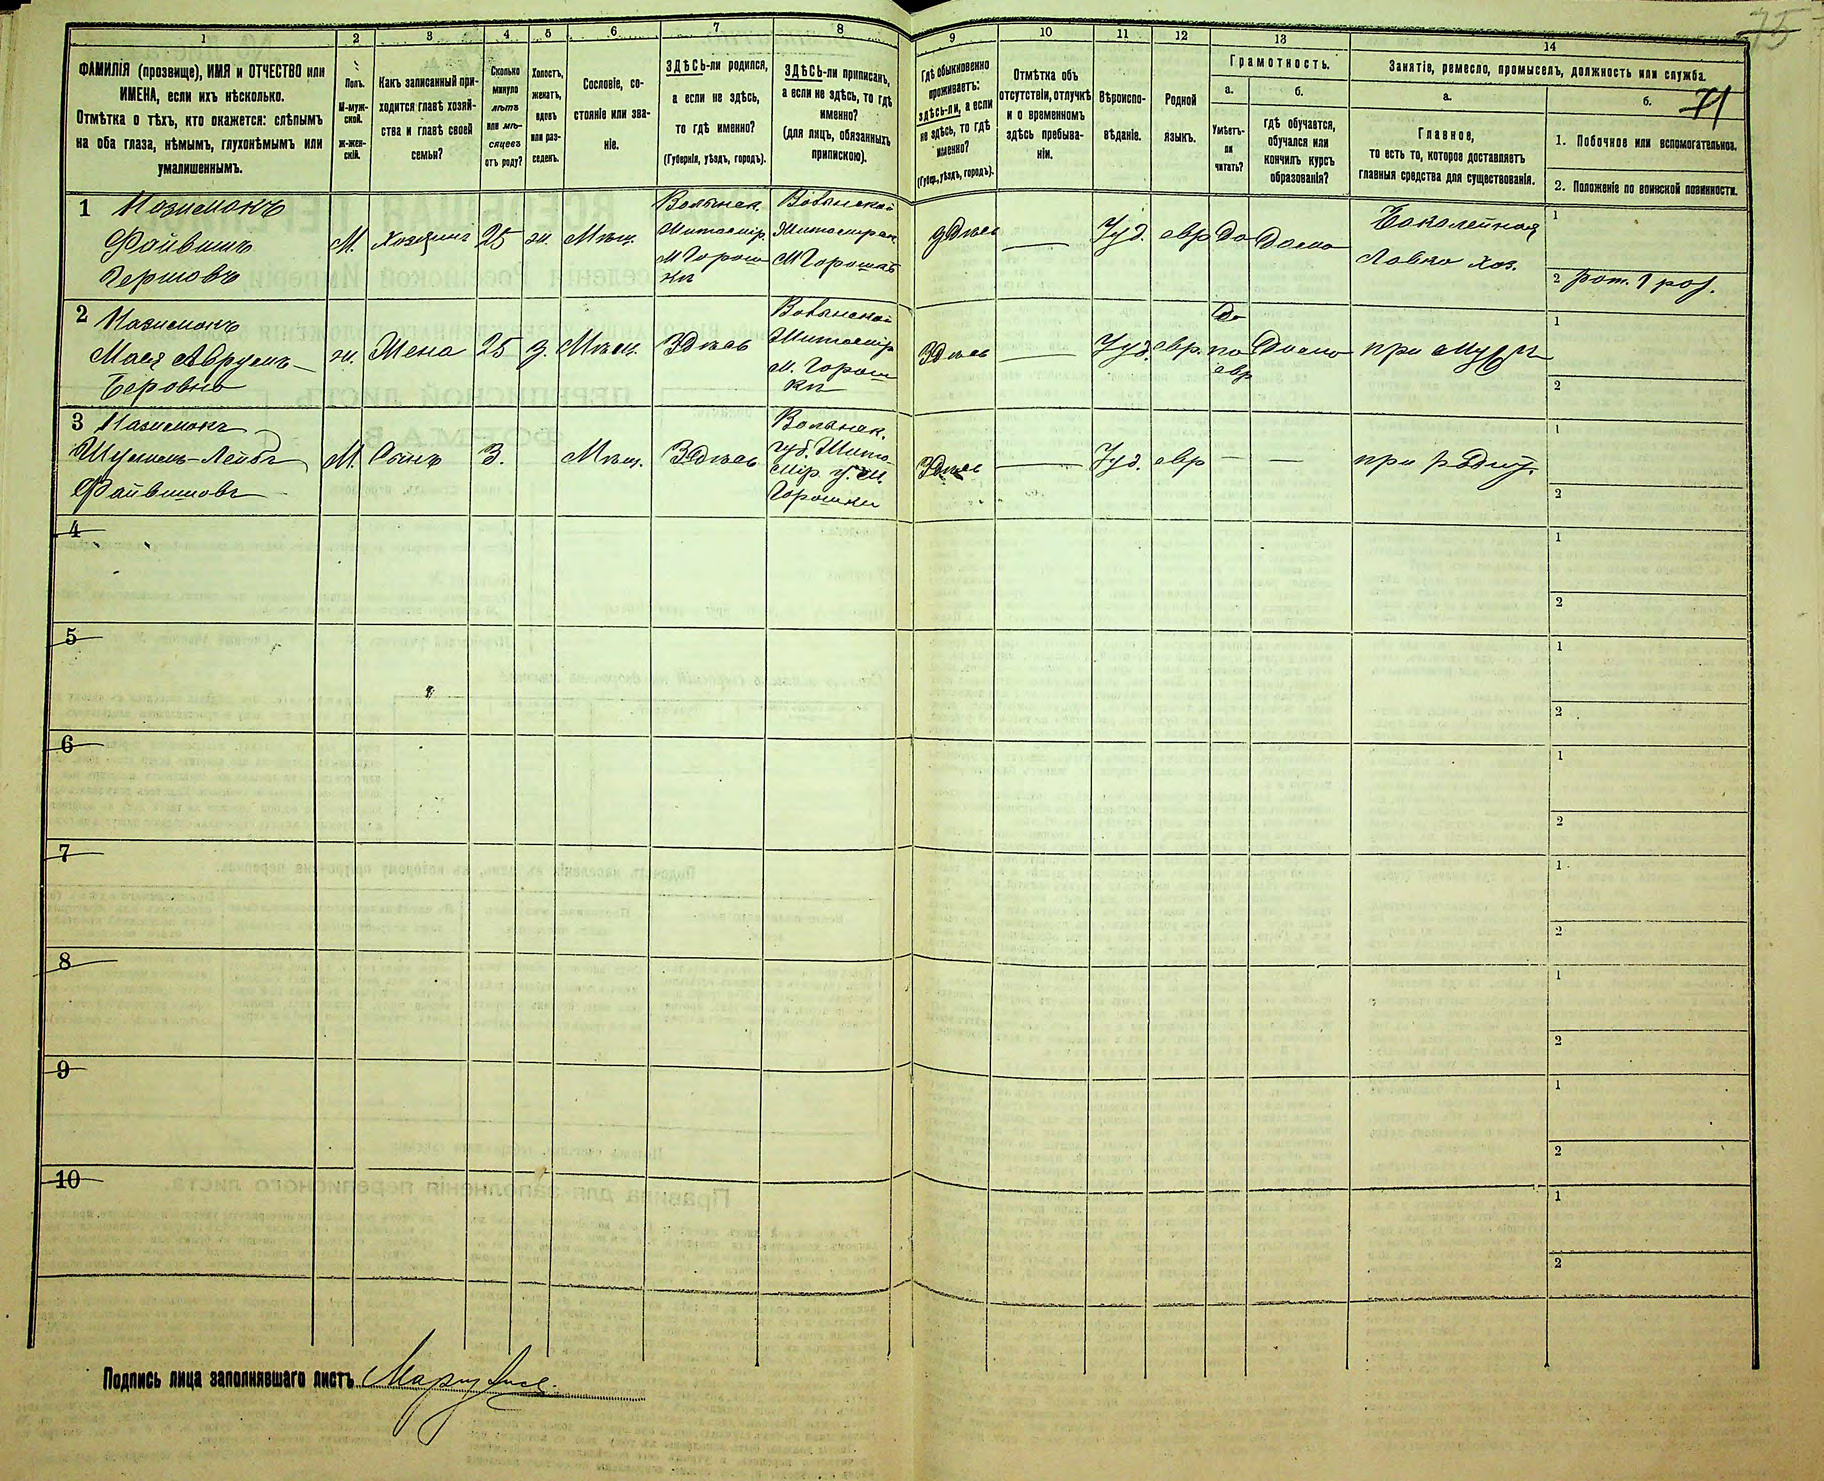 75
71
1
2
3
4
5
6
7
8
9
10
11
12
13
14
ФАМИЛІЯ (прозвище), ИМЯ и ОТЧЕСТВО или
ИМЕНА, если ихъ нѣсколько.
Отмѣтка о тѣхъ, кто окажется: слѣпымъ
на оба глаза, нѣмымъ, глухонѣмымъ или
умалишеннымъ.
Полъ.
М-муж-
ской.
Ж-жен-
скій.
Какъ записанный при-
ходится главѣ хозяй-
ства и главѣ своей
семьи?
Сколько
минуло
лѣтъ
или мѣ-
сяцевъ
отъ роду?
Холостъ,
женатъ,
вдовъ
или раз-
веденъ.
Сословіе, со-
стояніе или зва-
ніе.
ЗДѢСЬ-ли родился,
а если не здѣсь,
то гдѣ именно?
(Губернія, уѣздъ, городъ).
ЗДѢСЬ-ли приписанъ,
а если не здѣсь, то гдѣ
именно?
(для лицъ, обязанныхъ
припискою).
Гдѣ обыкновенно
проживаетъ:
здѣсь-ли, а если
не здѣсь, то гдѣ
именно?
(Губер., уѣздъ, городъ).
Отмѣтка объ
отсутствіи, отлучкѣ
и о временномъ
здѣсь пребыва-
ніи.
Вѣроиспо-
вѣданіе.
Родной
языкъ.
Грамотность.
а.
Умѣетъ-
ли
читать?
б.
гдѣ обучается,
обучался или
кончилъ курсъ
образованія?
Занятіе, ремесло, промыселъ, должность или служба.
а.
Главное,
то есть то, которое доставляетъ
главныя средства для существованія.
б.
1. Побочное или вспомогательное.
2. Положеніе по воинской повинности.
1
Файвишъ
Гершовъ
М.
Хозяинъ
25
ж.
Мѣщ.
Волынск.
Житомір.
М Горош
ки
Волынской
М Горошкъ
Здѣсь
Іуд.
евр
Да
Дома
Бакалейная
Лавка хоз.
1
2
2
Мася Аврумъ-
Беровна
ж.
Жена
25
з.
Мѣщ.
Здѣсь
Волынской
Житомір
м. Горош
ки
Здѣсь
Іуд.
евр.
Да
по
евр
Дома
при мужѣ
1
2
3
Шулимъ-Лейба
Файвишовъ
М.
Сынъ
3.
Мѣщ.
Здѣсь
Волынск.
губ. Жито
мір у. м.
Горошки
Здѣсь
Іуд.
евр
при родит.
1
2
4
1
2
5
1
2
6
1
2
7
1
2
8
1
2
9
1
2
10
1
2
Подпись лица заполнявшаго листъ